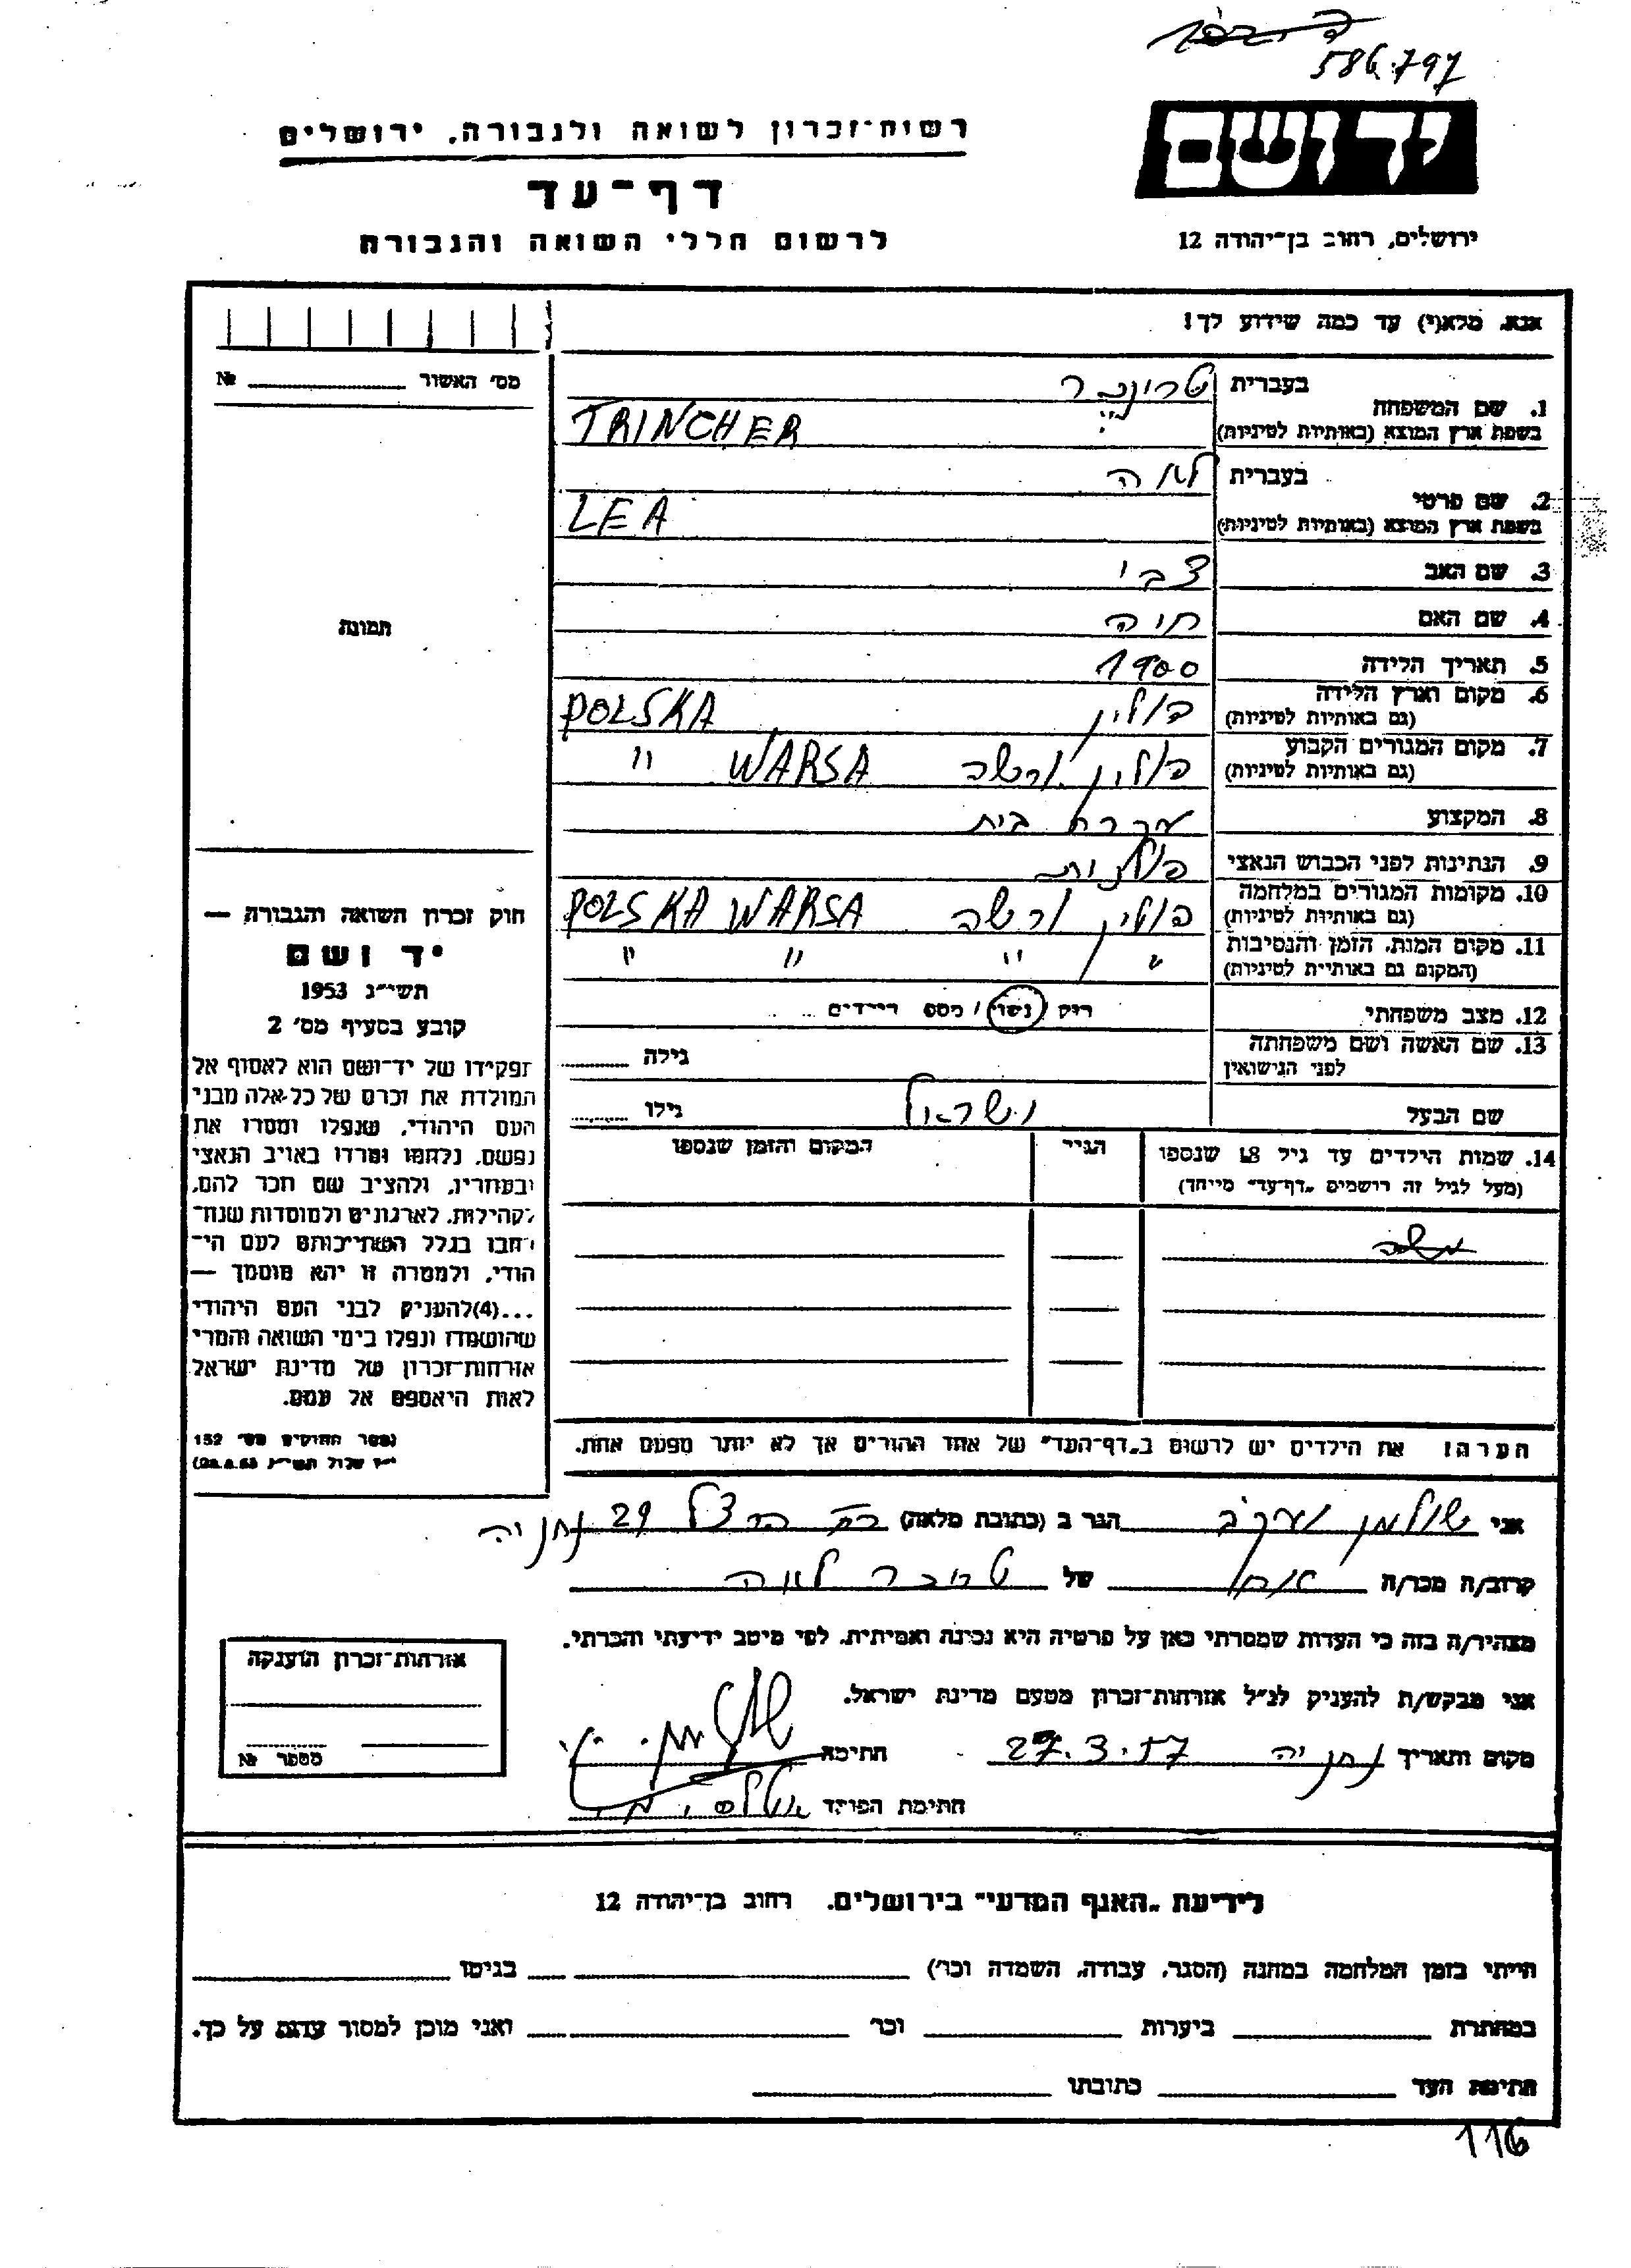 586.797
יד ושם
רשות־זכרון לשואה ולגבורה, ירושלים
דף־עד
לרשום חללי השואה והגבורה
ירושלים, רחוב בן־יהודה 12
אנא, מלא(י) עד כמה שידוע לך!
מס׳ האשור № 
1. שם המשפחה
בעברית
בשפת ארץ המוצא (באותיות לטיניות)
TRINCHER
2. שם פרטי
בעברית לאה
בשפת ארץ המוצא (באותיות לטיניות)
LEA
3. שם האב צבי
4. שם האם חוה
5. תאריך הלידה 1900
6. מקום וארץ הלידה
(גם באותיות לטיניות)
פולין POLSKA
7. מקום המגורים הקבוע
(גם באותיות לטיניות)
פולין, ורשה WARSA "
8. המקצוע עקרת בית
9. הנתינות לפני הכבוש הנאצי פולנית
10. מקומות המגורים במלחמה
(גם באותיות לטיניות)
פולין ורשה POLSKA WARSA
11. מקום המות, הזמן והנסיבות
(המקום גם באותיות לטיניות)
" " " "
12. מצב משפחתי
רוק / נשוי / מספר הילדים
13. שם האשה ושם משפחתה
לפני הנישואין
גילה
שם הבעל ישראל גילו
14. שמות הילדים עד גיל 18 שנספו
(מעל לגיל זה רושמים „דף־עד" מייחד)
הגיל
המקום והזמן שנספו
הערה! את הילדים יש לרשום ב„דף־העד" של אחד ההורים אך לא יותר מפעם אחת.
תמונה
חוק זכרון השואה והגבורה —
יד ושם
תשי״ג 1953
קובע בסעיף מס׳ 2
תפקידו של יד־ושם הוא לאסוף אל
המולדת את זכרם של כל־אלה מבני
העם היהודי, שנפלו ומסרו את
נפשם, נלחמו ומרדו באויב הנאצי
ובעוזריו, ולהציב שם וזכר להם,
לקהילות, לארגונים ולמוסדות שנח־
רבו בגלל השתייכותם לעם הי־
הודי, ולמטרה זו יהא מוסמך —
...(4)להעניק לבני העם היהודי
שהושמדו ונפלו בימי השואה והמרי
אזרחות־זכרון של מדינת ישראל
לאות היאספם אל עמם.
(ספר החוקים מס׳ 132
י״ז אלול תשי״ג 28.8.53)
אני שולמן יעקב הגר ב (כתובת מלאה) הרצל 29 נתניה
קרוב/ה מכר/ה אח של לאה
מצהיר/ה בזה כי העדות שמסרתי כאן על פרטיה היא נכונה ואמיתית, לפי מיטב ידיעתי והכרתי.
אני מבקש/ת להעניק לנ״ל אזרחות־זכרון מטעם מדינת ישראל.
מקום ותאריך נתניה 27.3.57 חתימה
חתימת הפוקד
אזרחות־זכרון הוענקה
מספר №
לידיעת „האגף המדעי" בירושלים, רחוב בן־יהודה 12
הייתי בזמן המלחמה במחנה (הסגר, עבודה, השמדה וכו׳) בגיטו
במחתרת ביערות וכו׳ ואני מוכן למסור עדות על כך.
חתימת העד כתובתו
116